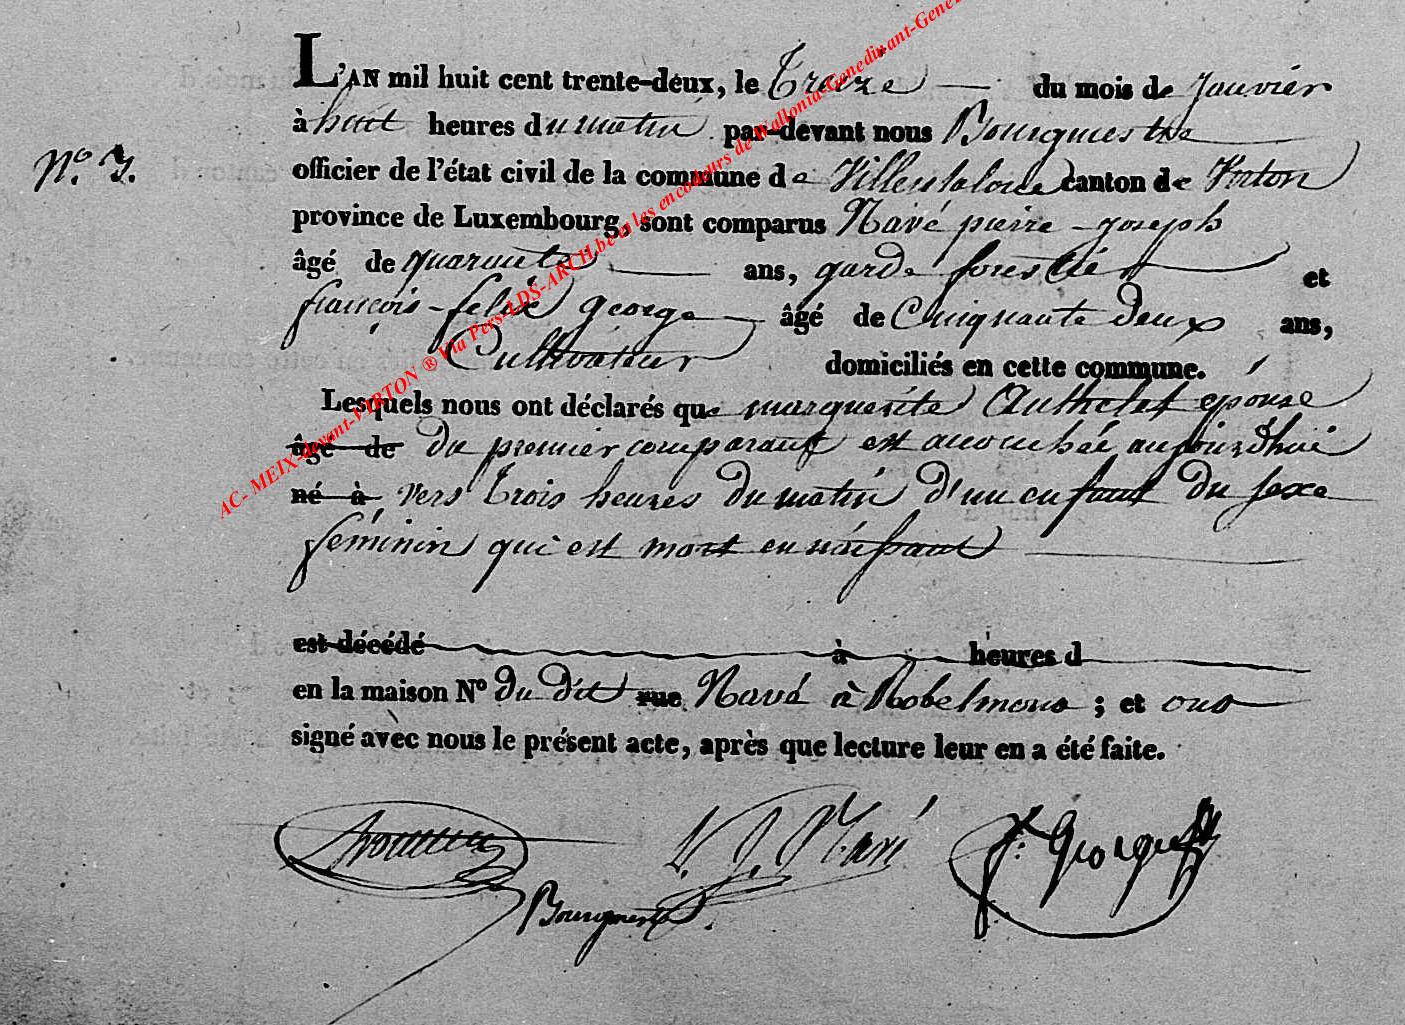 L'AN mil huit cent trente-deux, le treize du mois de Janvier
à huit heures du matin par-devant nous Bourgmestre
N.° 3.
officier de l'état civil de la commune de Villerslaloue canton de Virton
province de Luxembourg, sont comparus Navé pierre-joseph
âgé de quarante ans, garde forestier et
françois-felix george âgé de Cinquante deux ans,
Cultivateur domiciliés en cette commune.
Lesquels nous ont déclarés que marguerite Authelet épouse
âgé de du premier comparant est accouchée aujourd'hui
né à vers trois heures du matin d'un enfant du sexe
féminin qui est mort en naissant
est décédé à heures d
en la maison N° du dit rue Navé à Robelmont ; et ont
signé avec nous le présent acte, après que lecture leur en a été faite.
P. J. Navé
f: George
Bourgmestre.
AC- MEIX-devant-VIRTON ® Via Pers-LDS-ARCH.be et les encodeurs de Wallonia-Genedinant-Gene